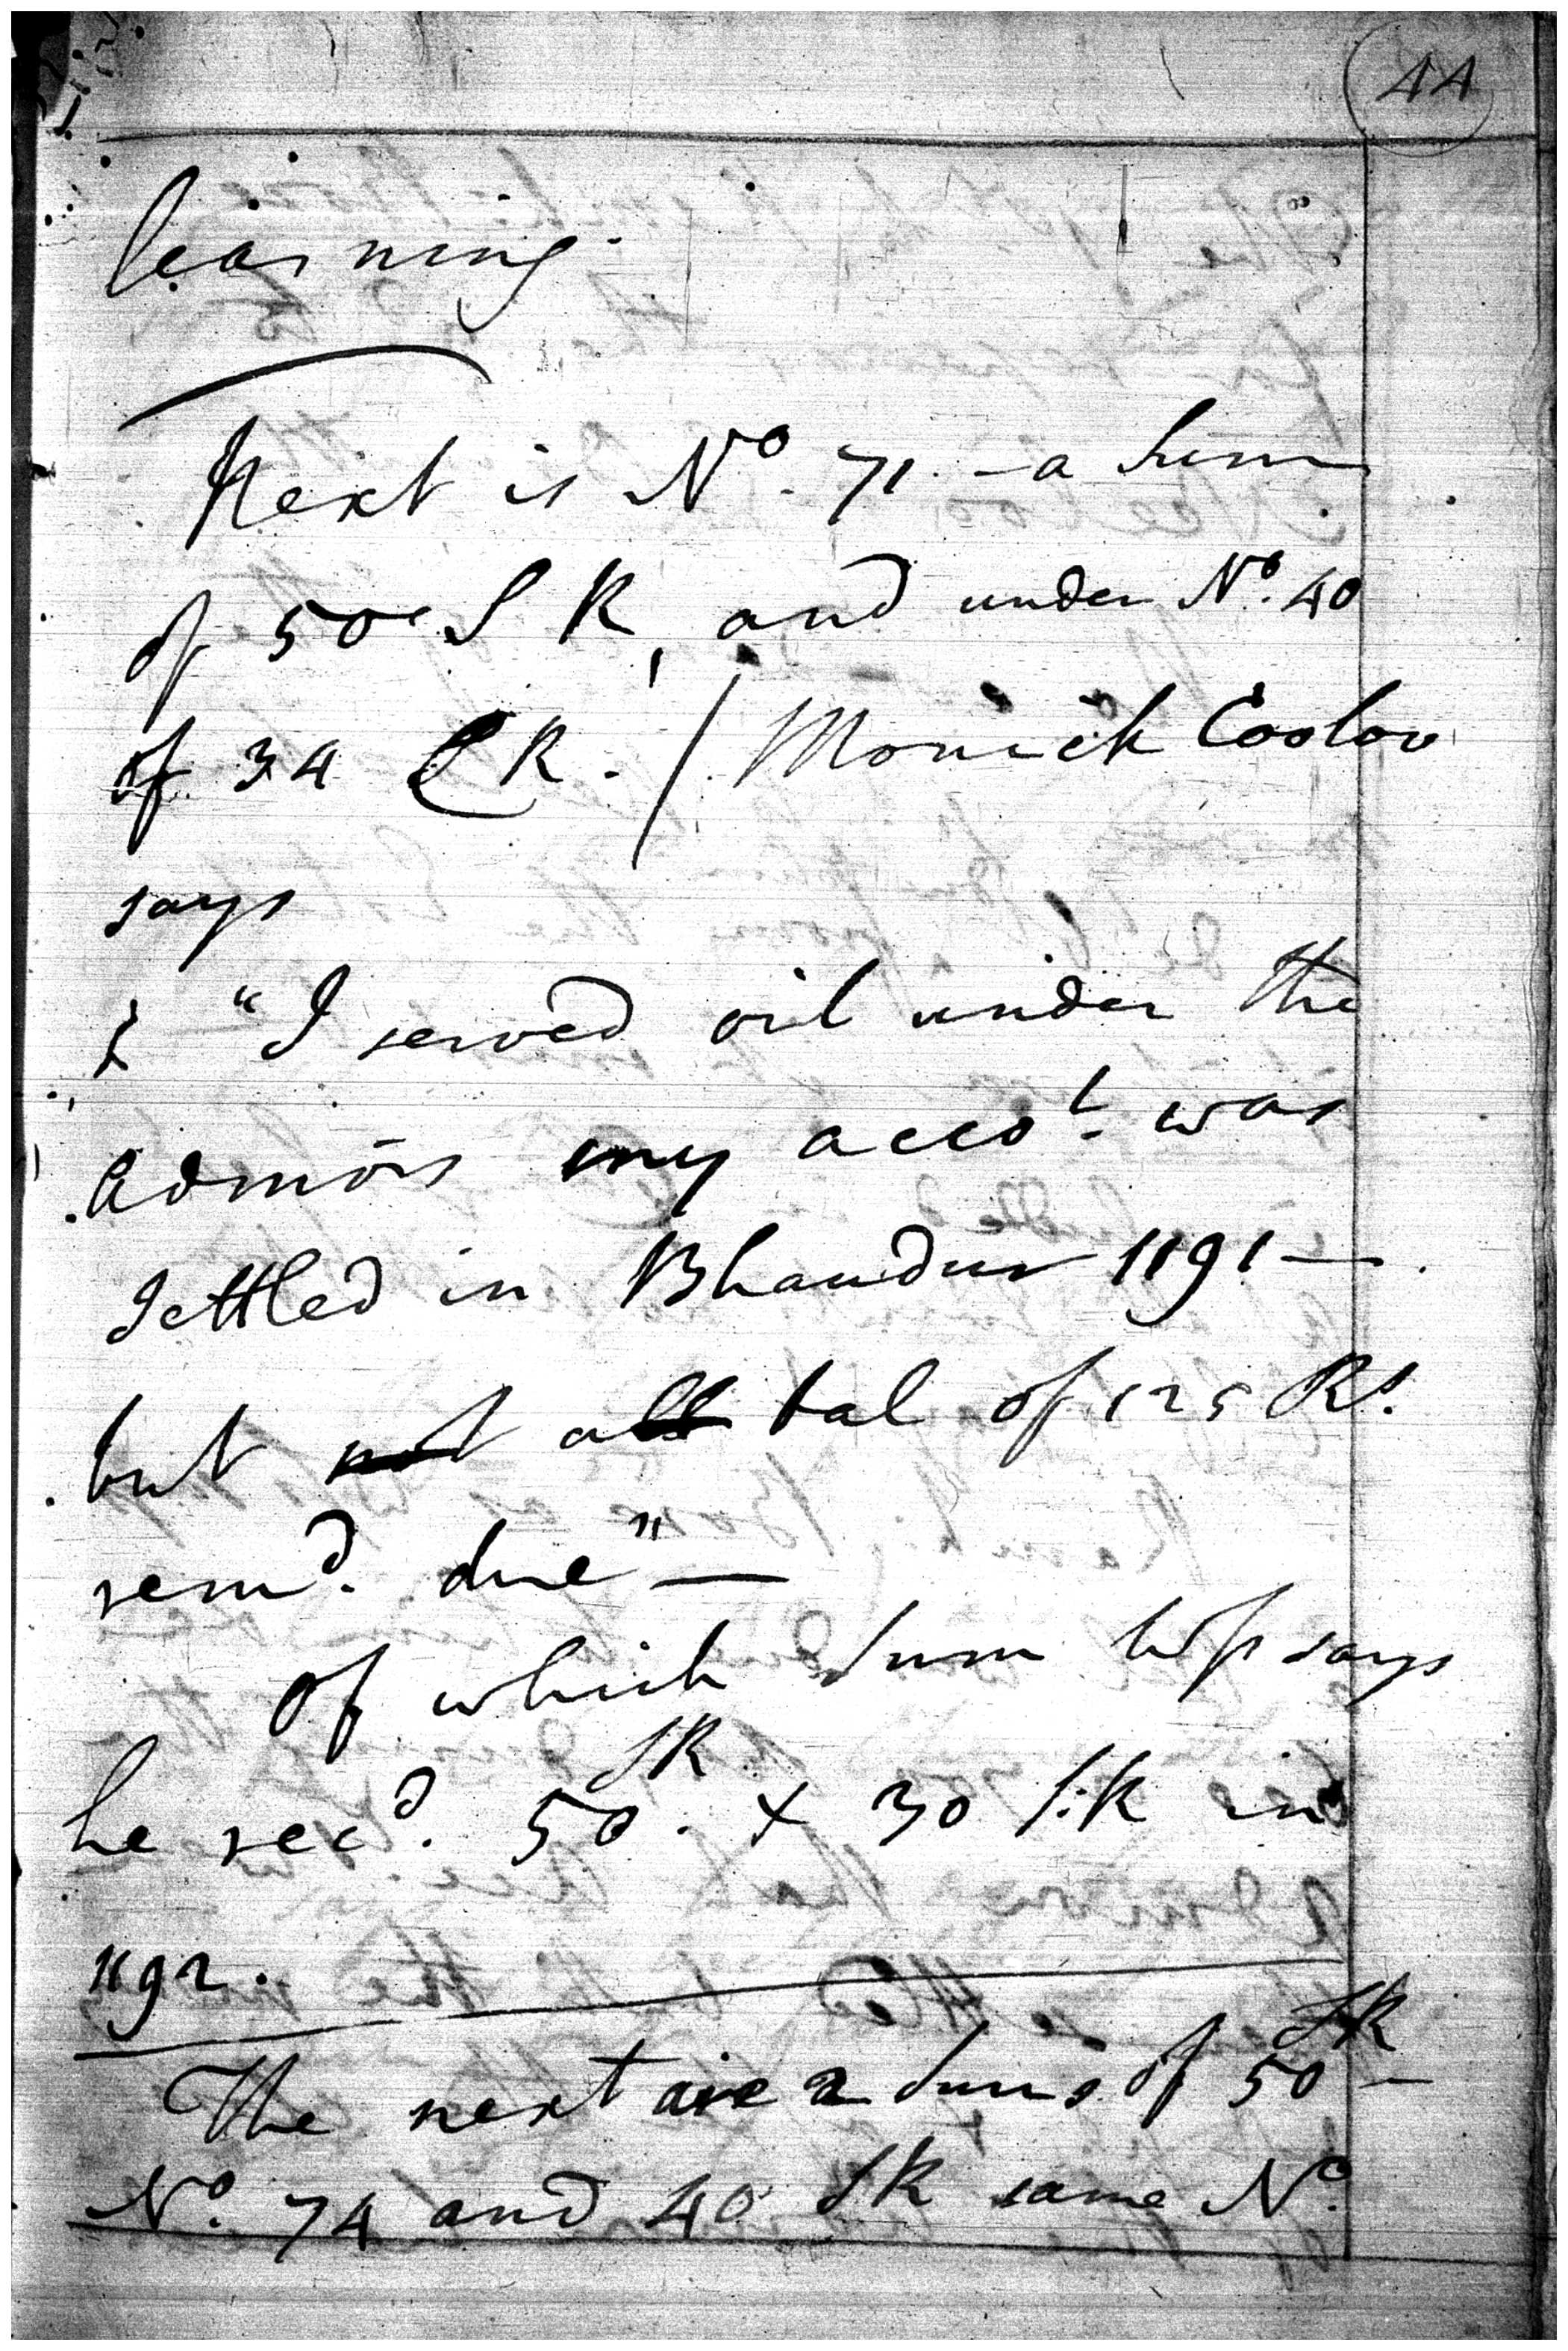 44
learning.
Next is No. 71. - a Sum
of 50 S R, and under No. 40
of 34 S R. / Monick Cooloo
says
"I served oil under the
admors my accot. was
settled in Bhaudur 1191 —
but not all bal of 125 Rs.
remd. due" —
Of which Sum Wss says
he recd. 50 SR. + 30 S.R in
1192.
The next are 2 Sums of 50 SR —
No. 74 and 40 SR same No.